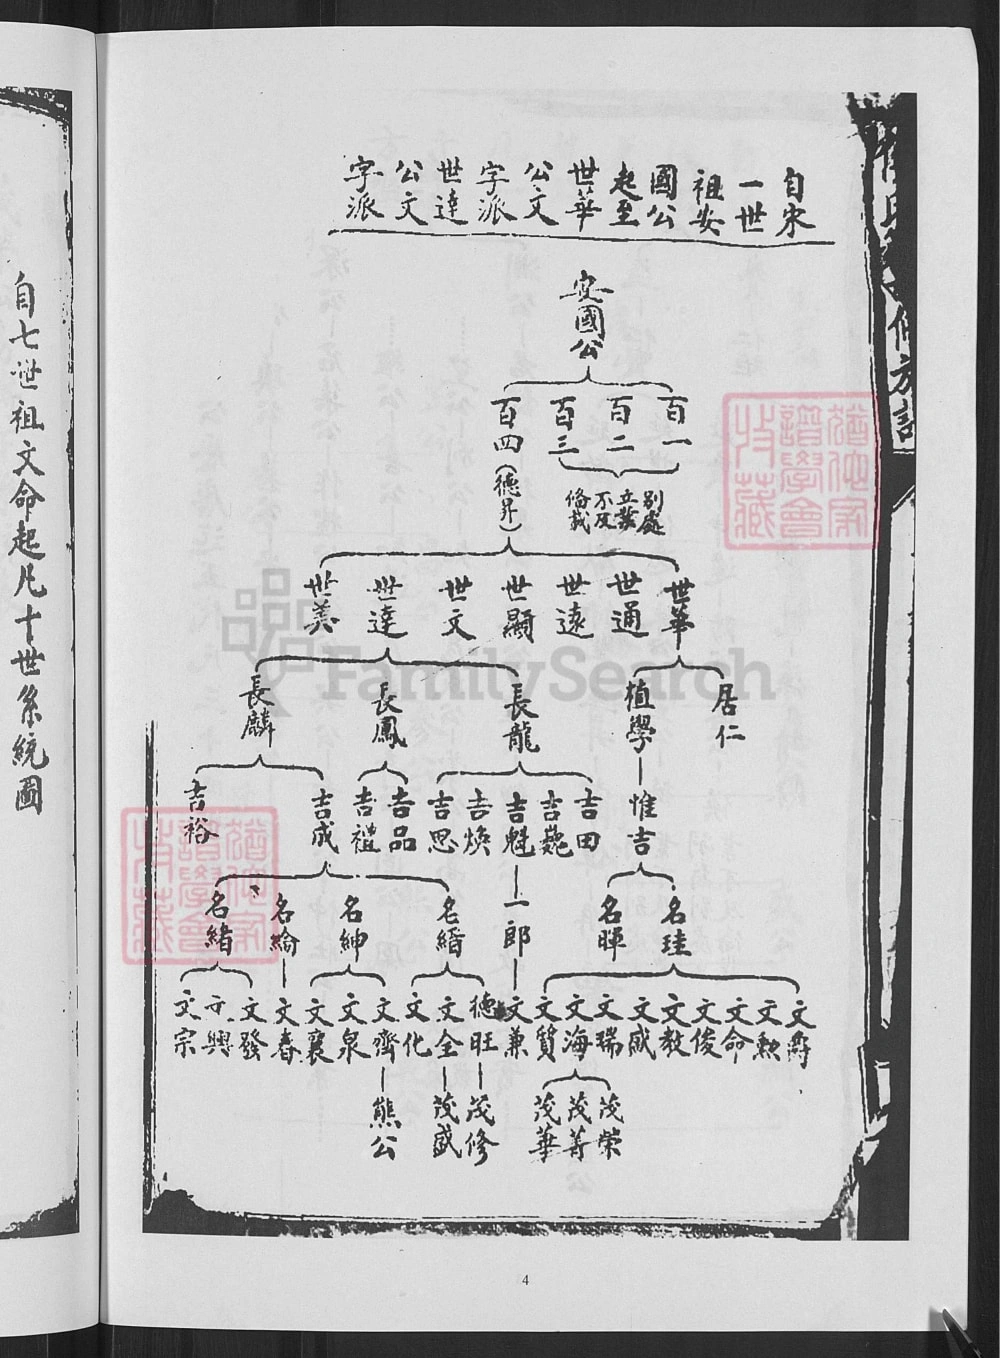 自宋
一世
祖安
國公
起至
世華
公文
字派
世達
公文
字派
安國公
百一
百二
百三
百四（德昇）
別處
立業
不及
俻載
世華
世通
世遠
世顯
世文
世達
世美
居仁
植學
長龍
長鳳
長麟
惟吉
吉田
吉魁
吉煥
吉思
吉品
吉禮
吉成
吉裕
名珪
名暉
一郎
名縉
名紳
名綸
名緒
文爵
文勲
文命
文俊
文教
文咸
文瑞
文海
文質
文兼
德旺
文全
文化
文齊
文泉
文襄
文春
文發
文興
文宗
茂榮
茂菁
茂華
茂修
茂盛
熊公
自七世祖文命起凡十世系統圖
FamilySearch
4